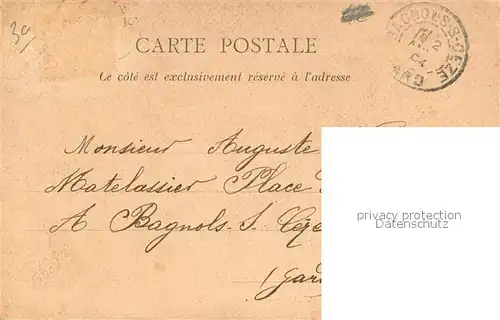 39
CARTE POSTALE
Ce côté est exclusivement réservé à l'adresse
BAGNOLS-S-CEZE
2
04
GARD
Monsieur Auguste
Matelassier Place
A Bagnols-S. Cèze
(Gar
privacy protection
Datenschutz